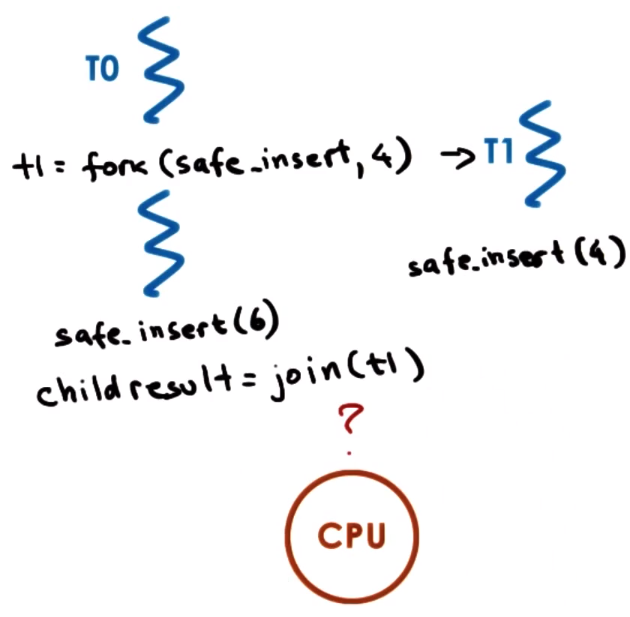 T0
t1 = fork (safe_insert, 4) → T1
safe_insert(4)
safe_insert(6)
child result = join(t1)
?
CPU